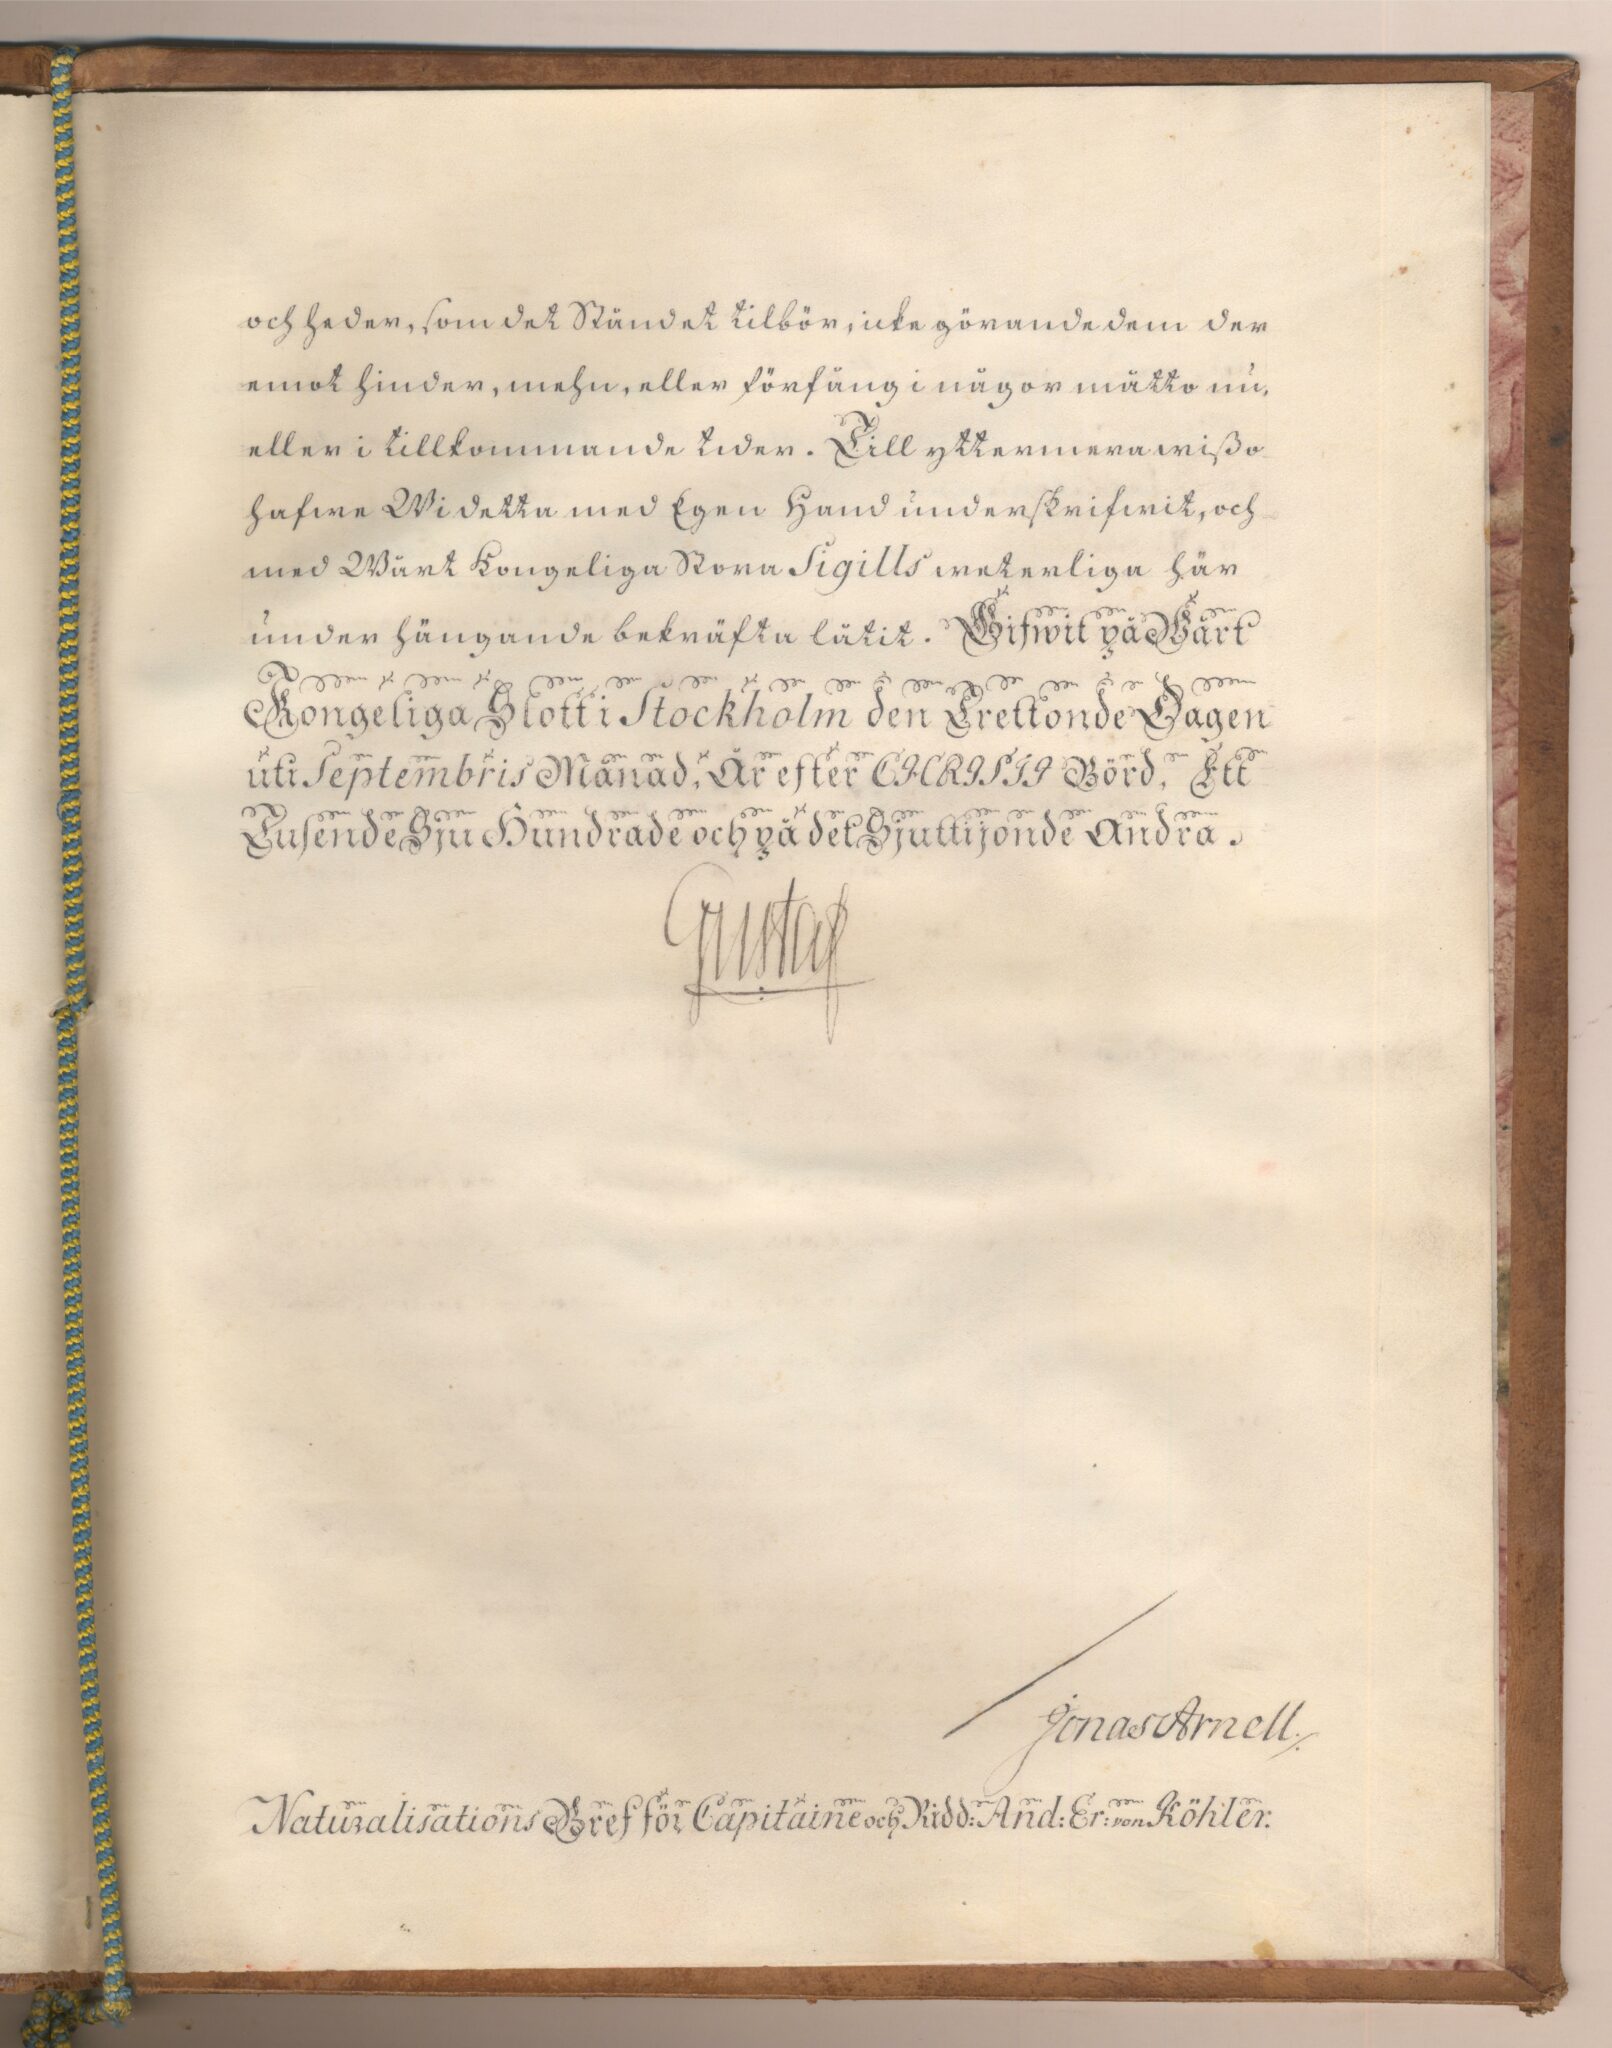 och heder, som det Ståndet tilbör, icke görande dem der
emot hinder, mehn, eller förfång i någor måtto nu,
eller i tillkommande tider. Till yttermera wißo
hafwe Wi detta med Egen Hand underskrifwit, och
med Wårt Kongeliga Stora Sigills weterliga här
under hängande bekräfta låtit. Gifwit på Wårt
Kongeliga Slott i Stockholm den Trettonde Dagen
uti Septembris Månad, År efter CHRISTI Börd, Ett
Tusende Sju Hundrade och på det Sjuttijonde Andra.
Gustaf
Jonas Arnell.
Naturalisations Bref för Capitaine och Ridd: And: Er: von Köhler.